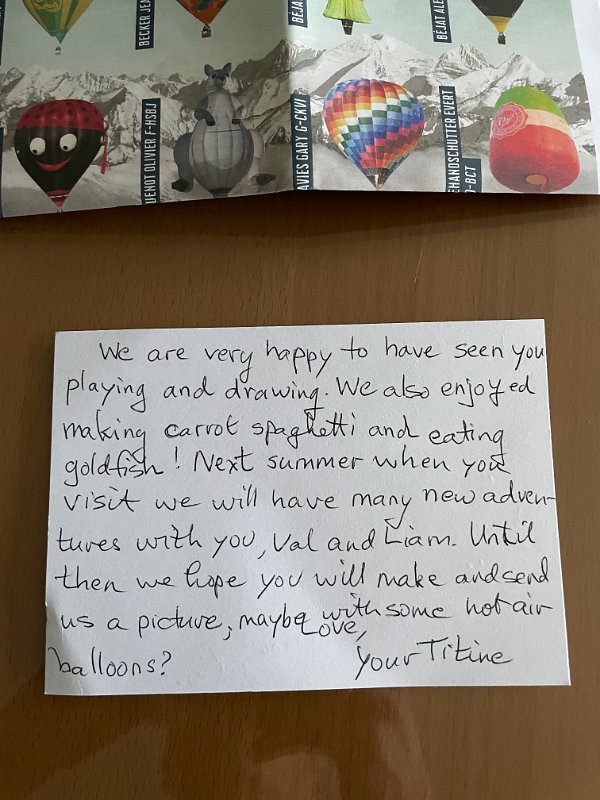 BECKER JE
BÉJA
BÉJAT ALE
UENOT OLIVIER F-HSBJ
AVIES GARY G-CKVI
EHANDSCHUTTER EVERT
O-BCT
We are very happy to have seen you
playing and drawing. We also enjoyed
making carrot spaghetti and eating
goldfish! Next summer when you
visit we will have many new adven-
tures with you, Val and Liam. Until
then we hope you will make and send
us a picture, maybe with some hot air
balloons?
Love,
Your Titine